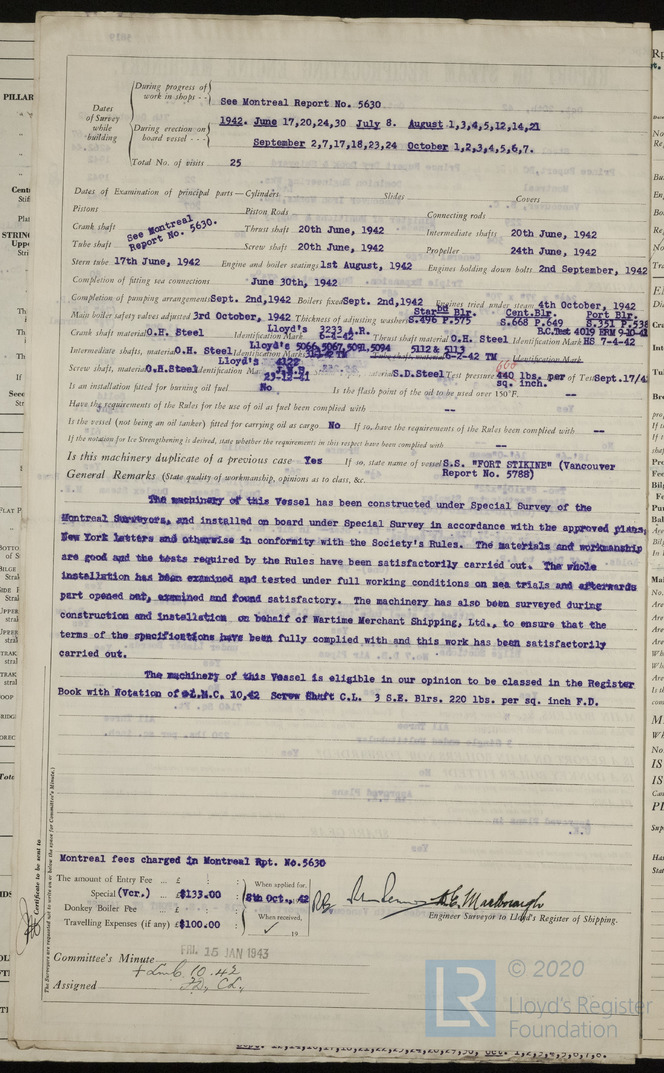 During progress of work in shops - - See Montreal Report No. 5630
Dates of Survey while building
During erection on board vessel - - - 1942. June 17,20,24,30 July 8. August 1,3,4,5,12,14,21
September 2,7,17,18,23,24 October 1,2,3,4,5,6,7.
Total No. of visits 25
Dates of Examination of principal parts—Cylinders Slides Covers
Pistons Piston Rods Connecting rods
Crank shaft See Montreal Report No. 5630. Thrust shaft 20th June, 1942 Intermediate shafts 20th June, 1942
Tube shaft Screw shaft 20th June, 1942 Propeller 24th June, 1942
Stern tube 17th June, 1942 Engine and boiler seatings 1st August, 1942 Engines holding down bolts 2nd September, 1942
Completion of fitting sea connections June 30th, 1942
Completion of pumping arrangements Sept. 2nd,1942 Boilers fixed Sept. 2nd,1942 Engines tried under steam 4th October, 1942
Main boiler safety valves adjusted 3rd October, 1942 Thickness of adjusting washers Starbd Blr. S.496 P.575 Cent.Blr. S.668 P.649 Port Blr. S.351 P.538
Crank shaft material O.H. Steel Identification Mark Lloyd's 3233 A.R. 6-4-42 Thrust shaft material O.H. Steel Identification Mark HS 7-4-42
Intermediate shafts, material O.H. Steel Identification Marks Lloyd's 5066,5067,5091,5094 5112 & 5113 6-2-42 TM Identification Mark
Screw shaft, material O.H.Steel Identification Mark Lloyd's 4122 29-12-41 S.D.Steel Test pressure 440 lbs. per sq. inch. of Test Sept.17/4
Is an installation fitted for burning oil fuel No Is the flash point of the oil to be used over 150°F. --
Have the requirements of the Rules for the use of oil as fuel been complied with --
Is the vessel (not being an oil tanker) fitted for carrying oil as cargo. No If so, have the requirements of the Rules been complied with --
If the notation for Ice Strengthening is desired, state whether the requirements in this respect have been complied with --
Is this machinery duplicate of a previous case Yes If so, state name of vessel S.S. "FORT STIKINE" (Vancouver
Report No. 5788)
General Remarks (State quality of workmanship, opinions as to class, &c.
The machinery of this Vessel has been constructed under Special Survey of the
Montreal Surveyors, and installed on board under Special Survey in accordance with the approved plans,
New York Letters and otherwise in conformity with the Society's Rules. The materials and workmanship
are good and the tests required by the Rules have been satisfactorily carried out. The whole
installation has been examined and tested under full working conditions on sea trials and afterwards
part opened out, examined and found satisfactory. The machinery has also been surveyed during
construction and installation on behalf of Wartime Merchant Shipping, Ltd., to ensure that the
terms of the specifications have been fully complied with and this work has been satisfactorily
carried out.
The machinery of this Vessel is eligible in our opinion to be classed in the Register
Book with Notation of L.M.C. 10,42 Screw Shaft C.L. 3 S.E. Blrs. 220 lbs. per sq. inch F.D.
Montreal fees charged in Montreal Rpt. No.5630
The amount of Entry Fee ... £ : : When applied for,
Special (Vcr.) ... £$133.00 8th Oct., 42
Donkey Boiler Fee ... £ : : When received,
Travelling Expenses (if any) £$100.00 19
Engineer Surveyor to Lloyd's Register of Shipping.
Committee's Minute FRI. 15 JAN 1943
Assigned + LMC 10.42
FD, CL,
Certificate to be sent to
The Surveyors are requested not to write on or below the space for Committee's Minute.
LR © 2020
Lloyd's Register
Foundation